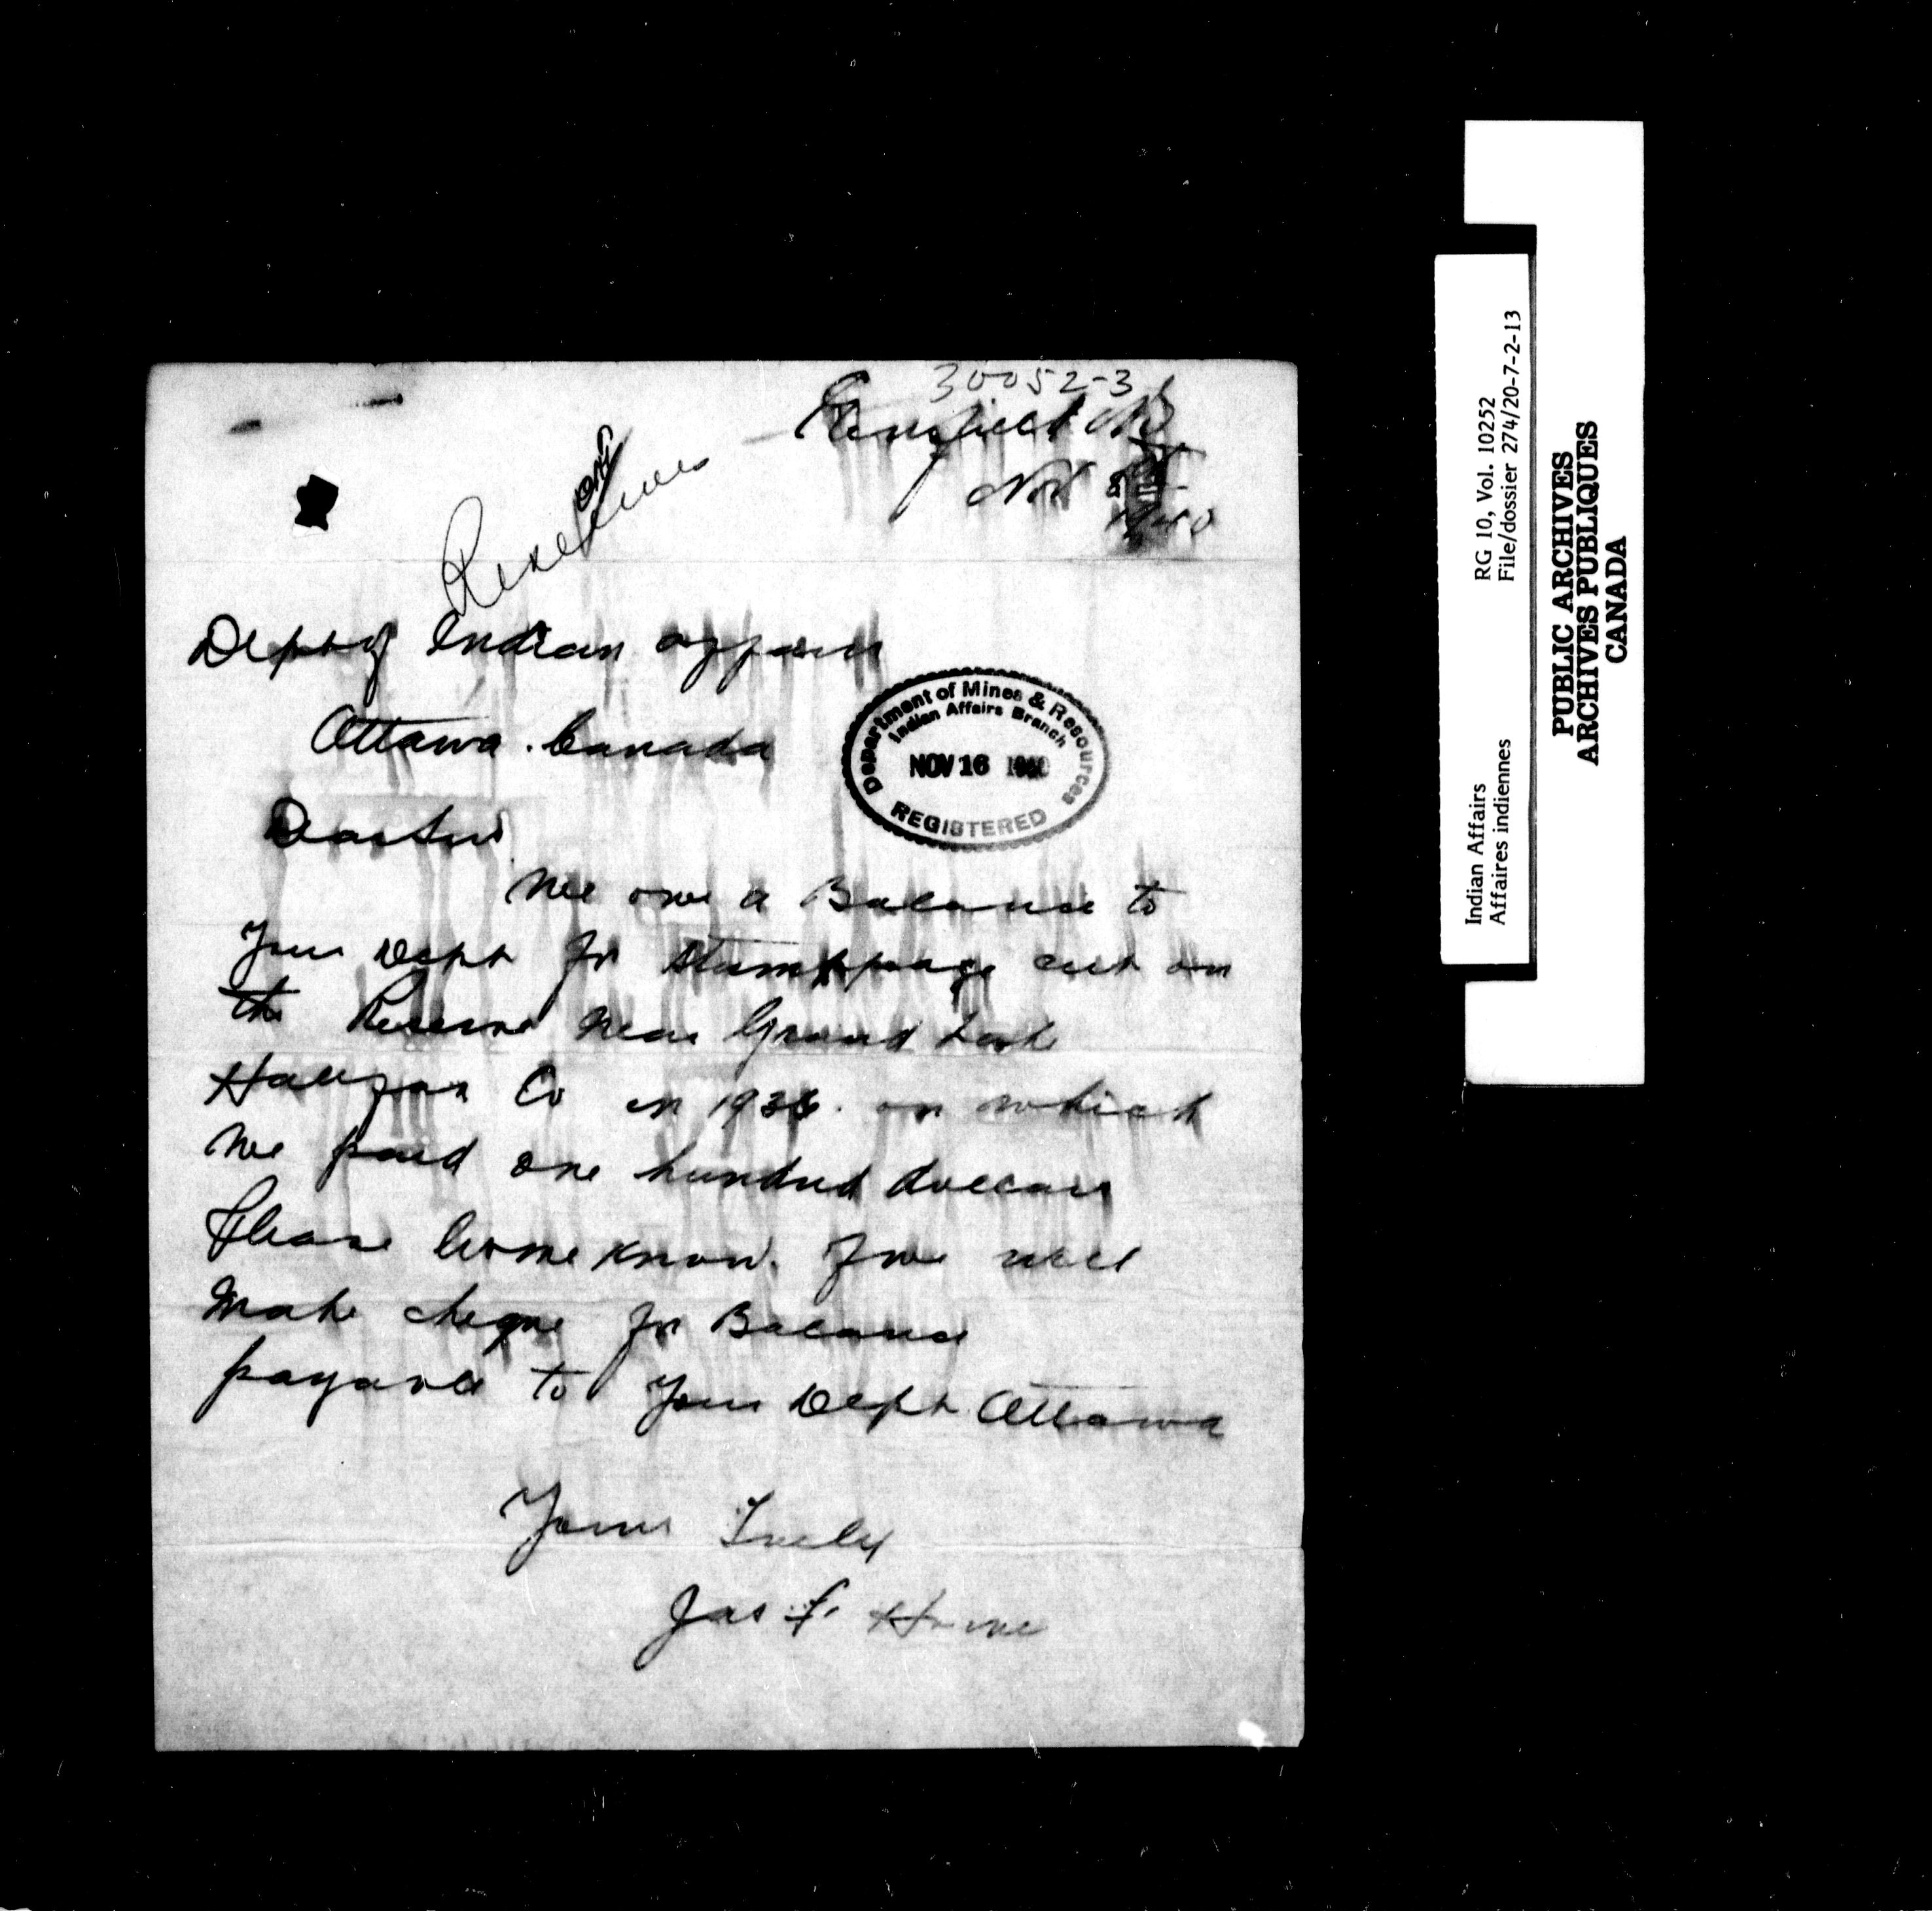 30052-3
Enfield NS
Nov
1940
Reserves
Dept of Indian affairs
Ottawa. Canada
Department of Mines & Resources
Indian Affairs Branch
NOV 16 1940
REGISTERED
Dear Sirs
We owe a Balance to
Your Dept for Stumppage cut on
the Reserve near Grand Lake
Halifax Co in 1938. on which
We paid one hundred dollars
Please let me know. If we will
Make cheque for Balance
payable to Your Dept. Ottawa
Yours Truly
Jas F. Horne
Indian Affairs RG 10, Vol. 10252
Affaires indiennes File/dossier 274/20-7-2-13
PUBLIC ARCHIVES
ARCHIVES PUBLIQUES
CANADA